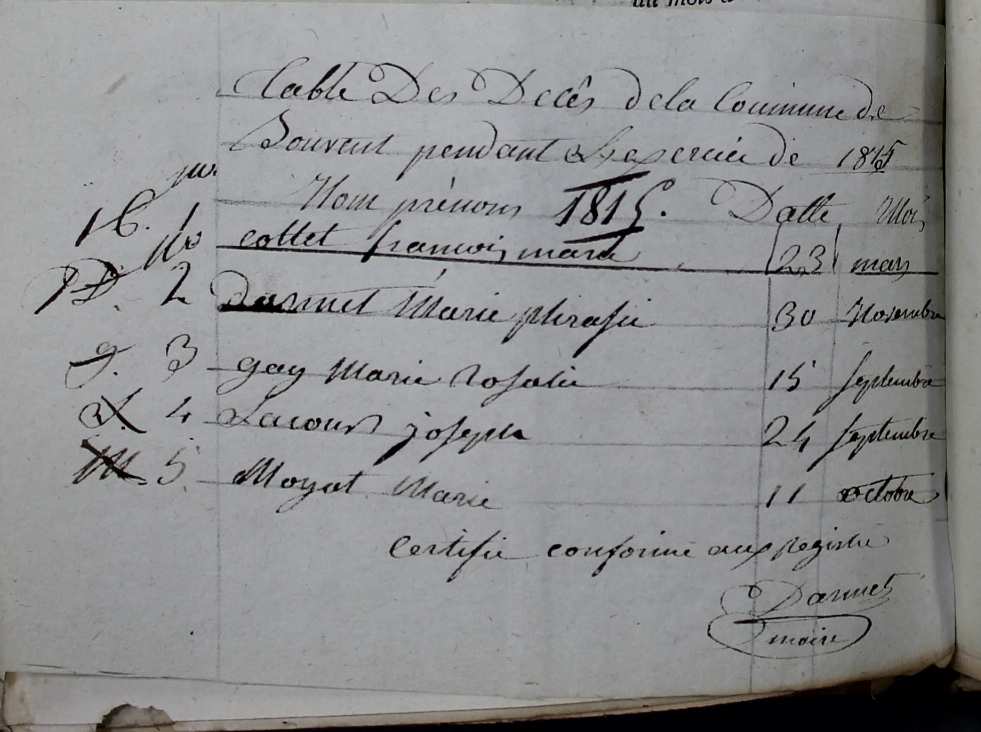 au mois d
Table Des Decês dela Commune de
Bouvent pendant L'exercice de 1815
no.
Nom prénoms 1815. Datte Mois
1 C. 1 collet francois marie 23 mars
D. 2 darmet Marie phirasie 30 Novembre
g. 3 gay Marie rosalie 15 septembre
L. 4 Lacour joseph 24 septembre
M 5 Moyat Marie 11 octobre
Certifié conforme aux registre
Darmet
maire